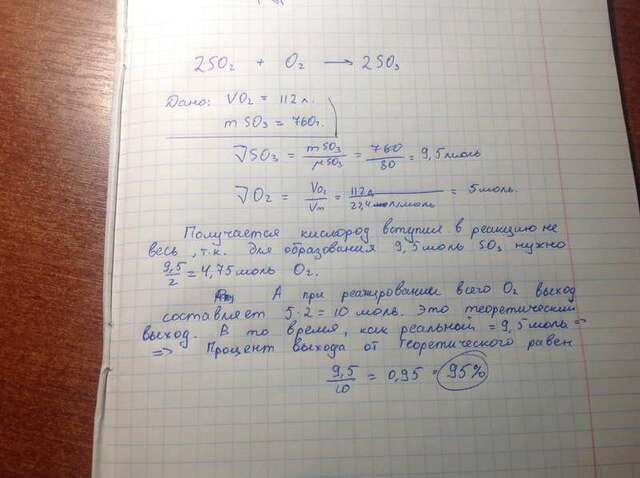 2SO₂ + O₂ → 2SO₃
Дано: VO₂ = 112 л.
mSO₃ = 760г.
νSO₃ = mSO₃/μSO₃ = 760/80 = 9,5 моль
νO₂ = Vo₂/Vm = 112л/22,4 л/моль = 5 моль.
Получается кислород вступил в реакцию не
весь, т.к. для образования 9,5 моль SO₃ нужно
9,5/2 = 4,75 моль O₂.
А при реагировании всего O₂ выход
составляет 5·2 = 10 моль. Это теоретический
выход. В то время, как реальный = 9,5 моль =>
=> Процент выхода от теоретического равен
9,5/10 = 0,95 = 95%